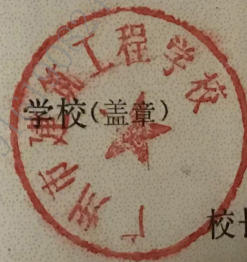 广州市建筑工程学校
学校(盖章)
校长